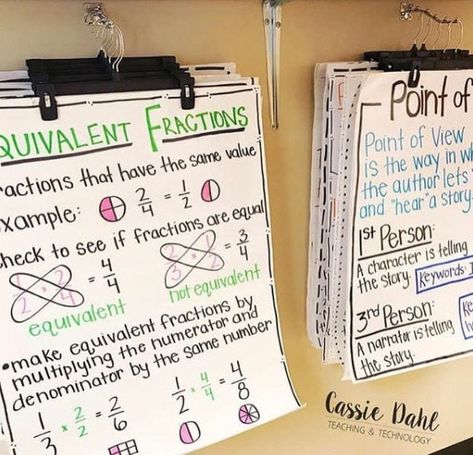 EQUIVALENT FRACTIONS
Fractions that have the same value
Example: 2/4 = 1/2
Check to see if fractions are equal
= 4/4
= 3/4
equivalent
not equivalent
•make equivalent fractions by
multiplying the numerator and
denominator by the same number
1/3 × 2/2 = 2/6
1/2 × 4/4 = 4/8
Point of
Point of View
is the way in
the author lets
and "hear" a story.
1st Person:
A character is telling
the story.
Keywords I
3rd Person:
A narrator is telling
the story.
Cassie Dahl
TEACHING & TECHNOLOGY